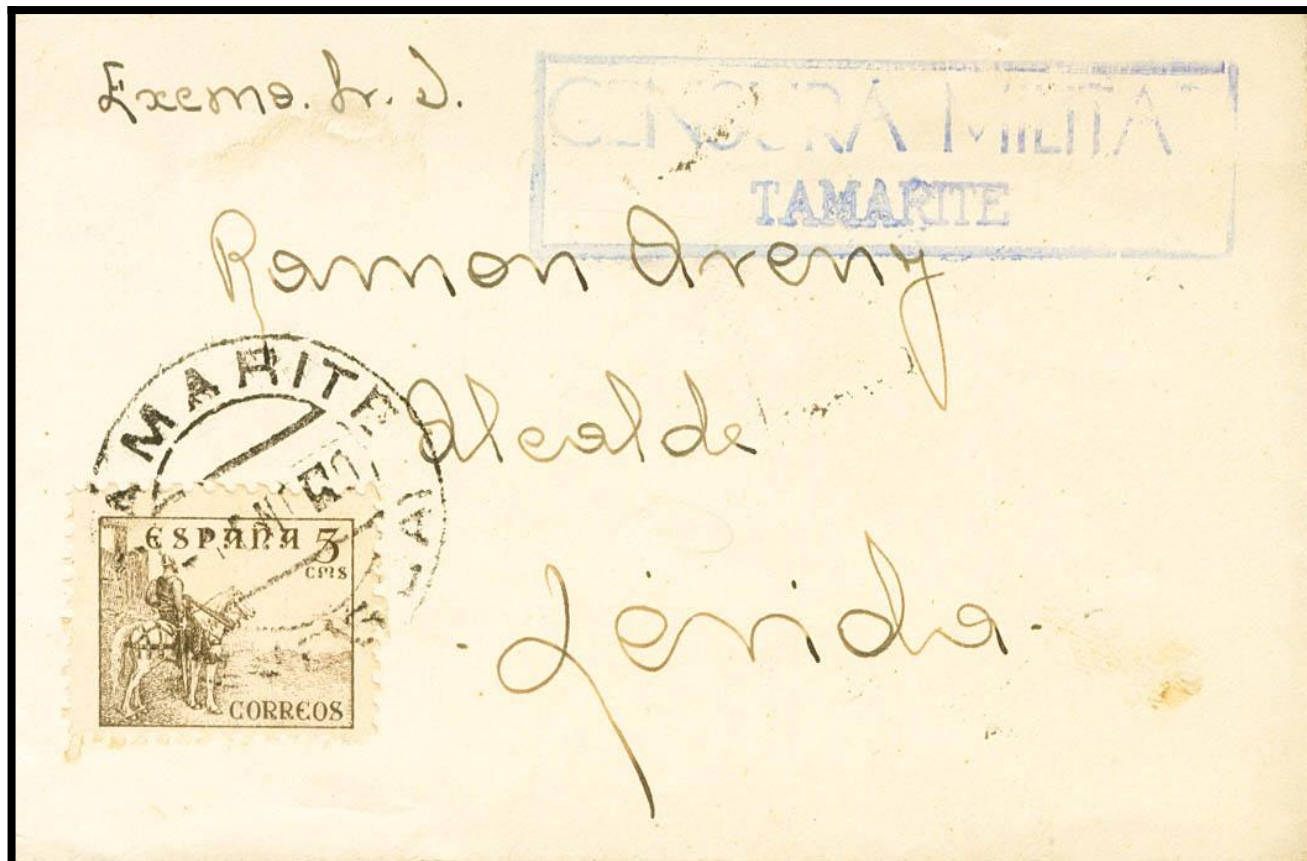 Exemo. Sr. D.
CENSURA MILITA
TAMARITE
Ramon Areny
Alcalde
Lérida
AMARITE
ESPAÑA 5
CMS
CORREOS